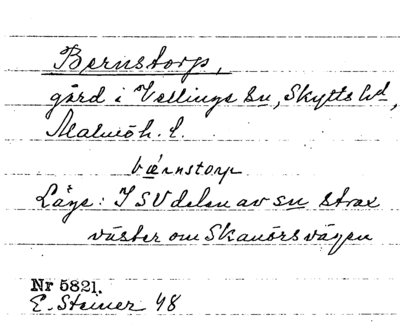 Bernstorp,
gård i Vellinge sn, Skytts hd,
Malmöh. l.
bærnstorp
Läge: I SV delen av sn strax
väster om Skanörsvägen
Nr 5821.
E. Steiner 48